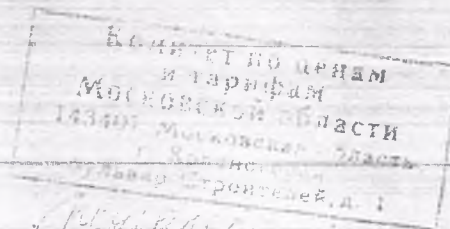 Комитет по ценам
и тарифам
Московской области
Московская область
бульвар Строителей, д. 1